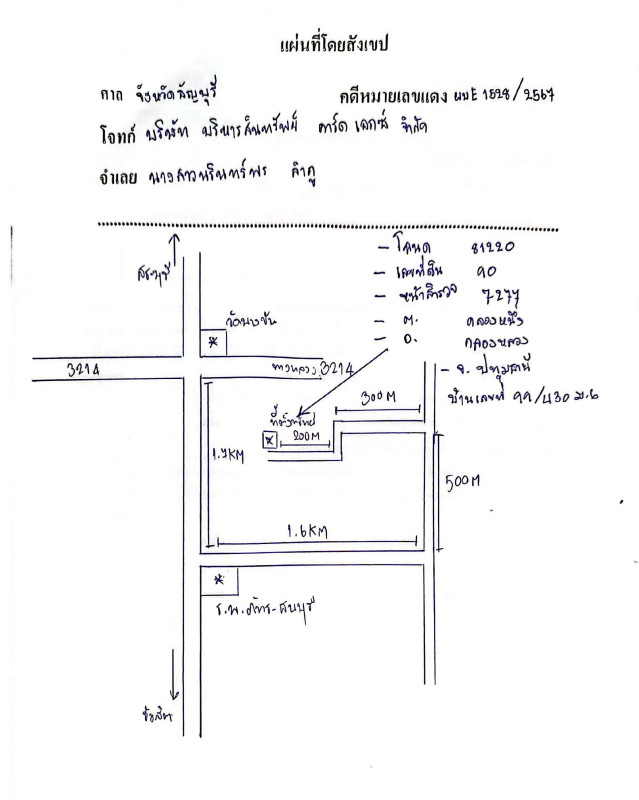 แผนที่โดยสังเขป
ศาล จังหวัดธัญบุรี
คดีหมายเลขแดง ผบE 1528/2567
โจทก์ บริษัท บริหารสินทรัพย์ คาร์ด เอกซ์ จำกัด
จำเลย นางสาวนรินทร์พร ลำภู
สระบุรี
- โฉนด 81220
- เลขที่ดิน 90
- หน้าสำรวจ 7277
- ต. คลองหนึ่ง
- อ. คลองหลวง
- จ. ปทุมธานี
บ้านเลขที่ 99/430 ม.6
3214
ทางหลวง 3214
ที่ตั้งทรัพย์
200M
300M
1.7KM
500M
1.6KM
ร.พ.ภัทร-ธนบุรี
รังสิต